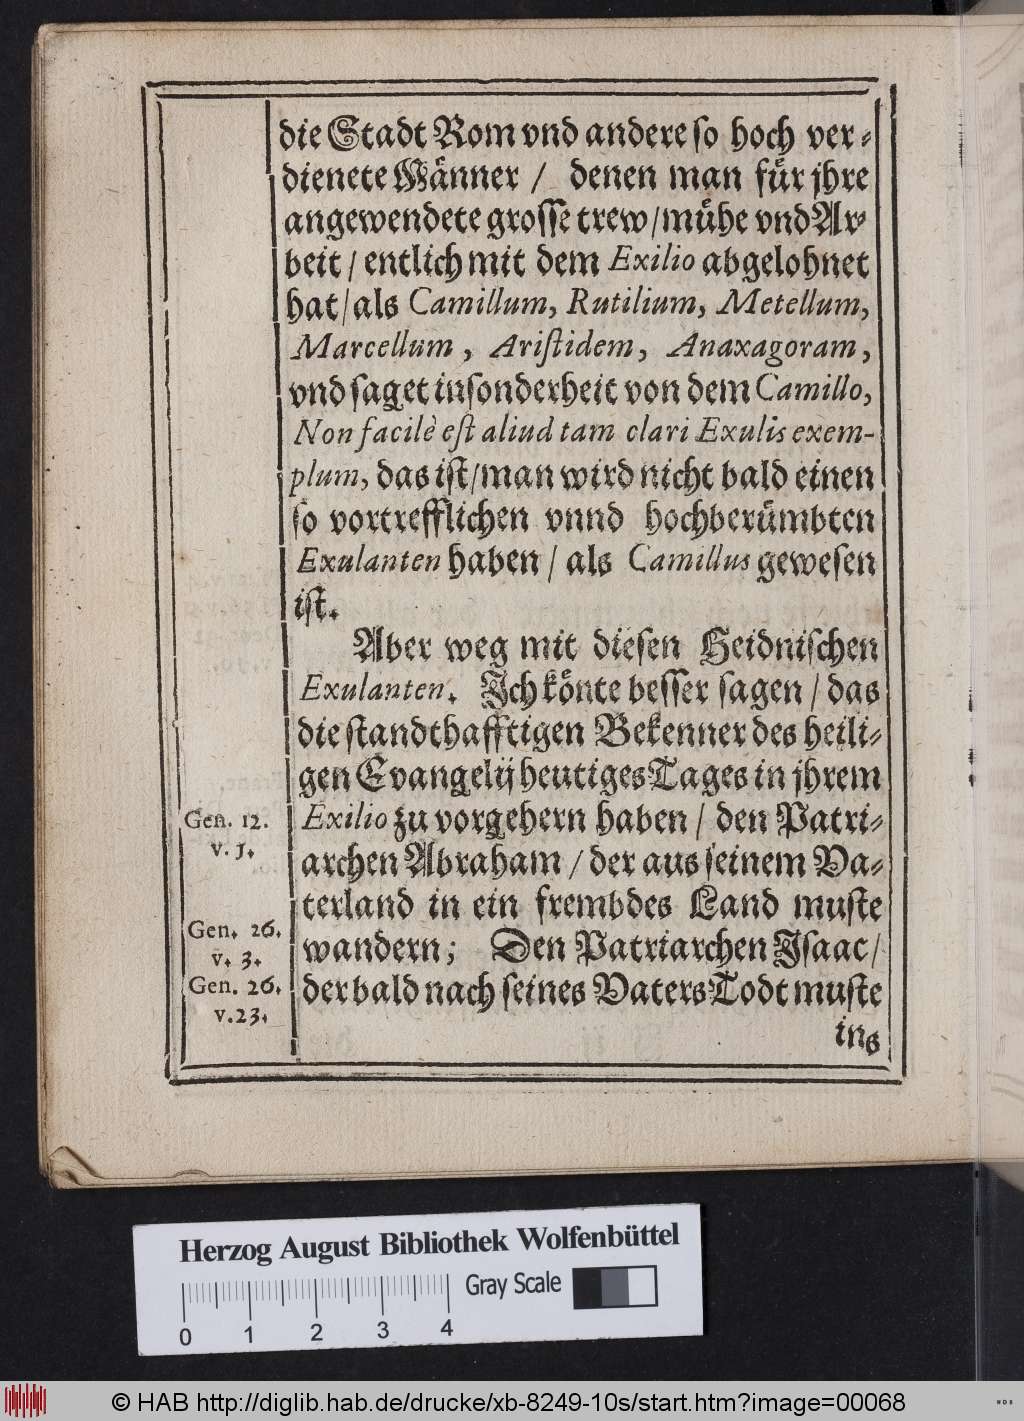 die Stadt Rom vnd andere so hoch ver-
dienete Männer / denen man für jhre
angewendete grosse trew / mühe vnd Ar-
beit / entlich mit dem Exilio abgelohnet
hat / als Camillum, Rutilium, Metellum,
Marcellum, Aristidem, Anaxagoram,
vnd saget insonderheit von dem Camillo,
Non facilè est aliud tam clari Exulis exem-
plum, das ist / man wird nicht bald einen
so vortrefflichen vnnd hochberümbten
Exulanten haben / als Camillus gewesen
ist.
Aber weg mit diesen Heidnischen
Exulanten. Ich könte besser sagen / das
die standthafftigen Bekenner des heili-
gen Evangelij heutiges Tages in jhrem
Exilio zu vorgehern haben / den Patri-
archen Abraham / der aus seinem Va-
terland in ein frembdes Land muste
wandern; Den Patriarchen Isaac /
der bald nach seines Vaters Todt muste
ins
Gen. 12.
v. 1.
Gen. 26.
v. 3.
Gen. 26.
v. 23.
Herzog August Bibliothek Wolfenbüttel
Gray Scale
0 1 2 3 4
© HAB http://diglib.hab.de/drucke/xb-8249-10s/start.htm?image=00068